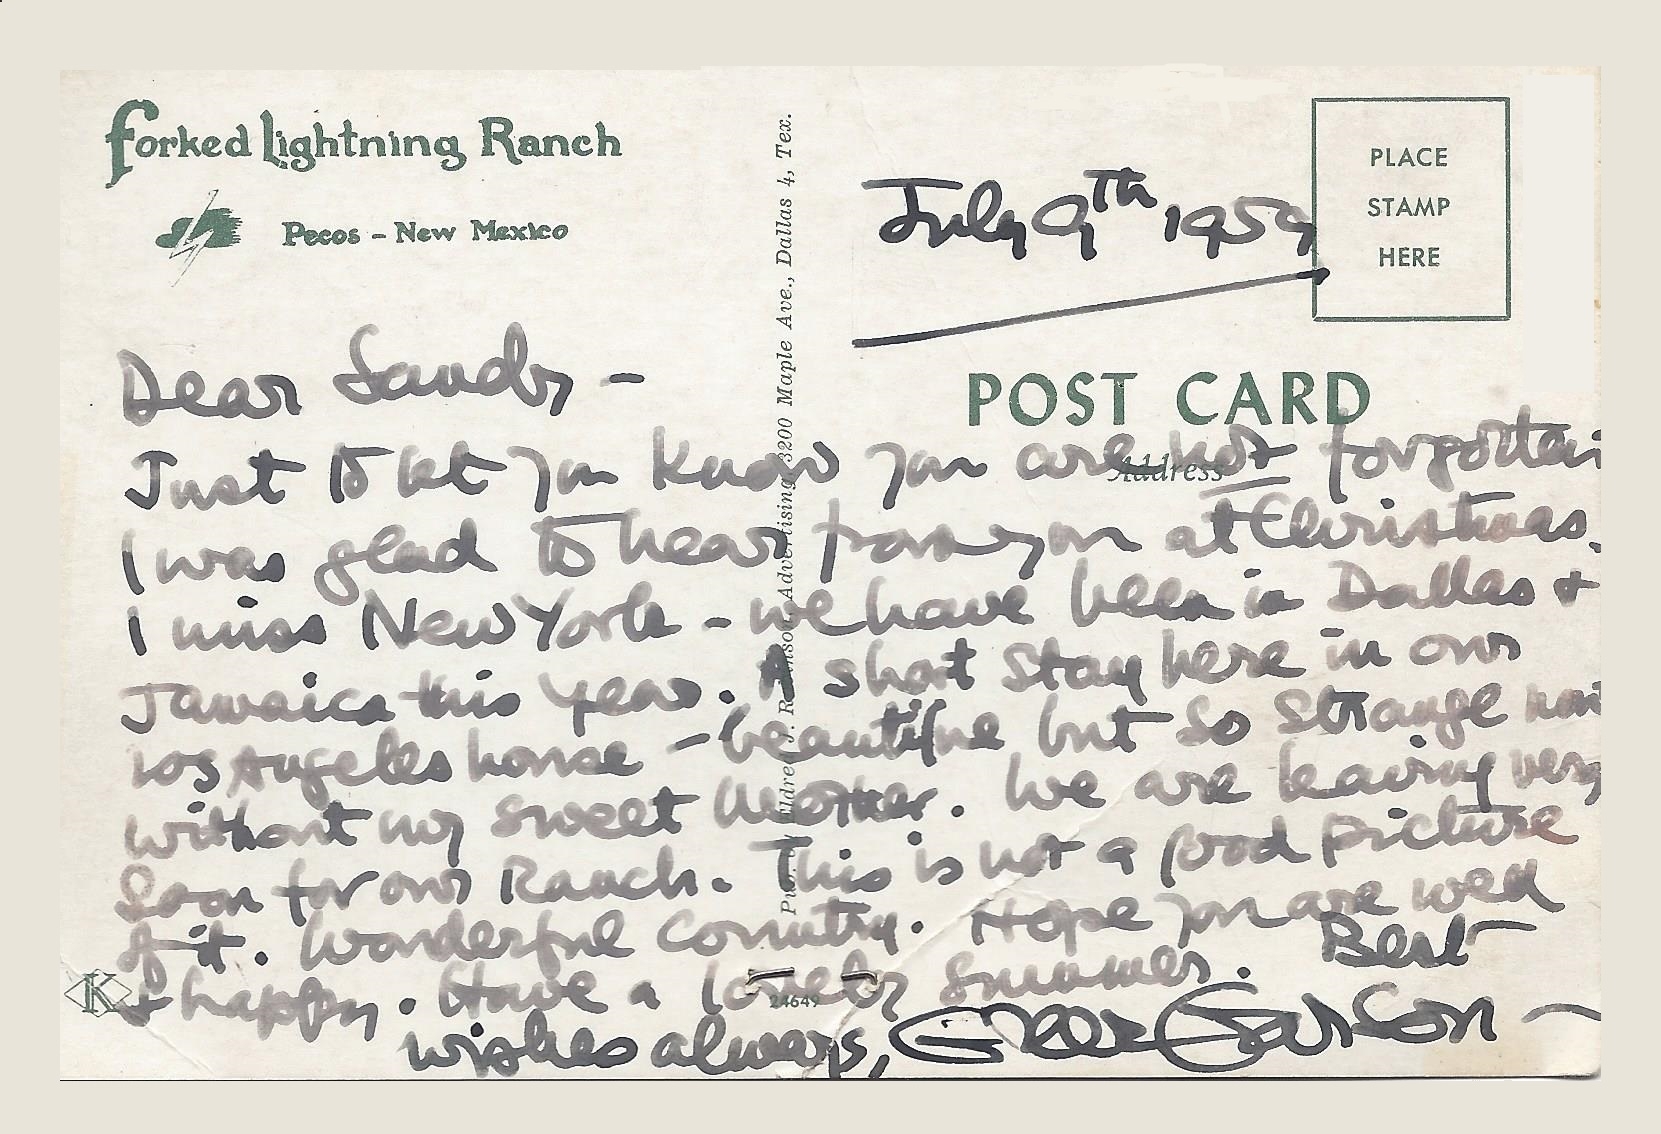 Forked Lightning Ranch
Pecos - New Mexico
July 9th 1959
PLACE
STAMP
HERE
POST CARD
Address
Dear Sandy -
Just to let you know you are not forgotten
I was glad to hear from you at Christmas.
I miss New York - we have been in Dallas +
Jamaica this year. A short stay here in our
Los Angeles house - beautiful but so strange now
without my sweet Mother. We are leaving very
soon for our Ranch. This is not a good picture
of it. Wonderful country. Hope you are well
+ happy. Have a lovely summer. Best
wishes always, Greer Garson -
Pub. by Eldred J. Robinson, Advertising, 3200 Maple Ave., Dallas 4, Tex.
K
24649